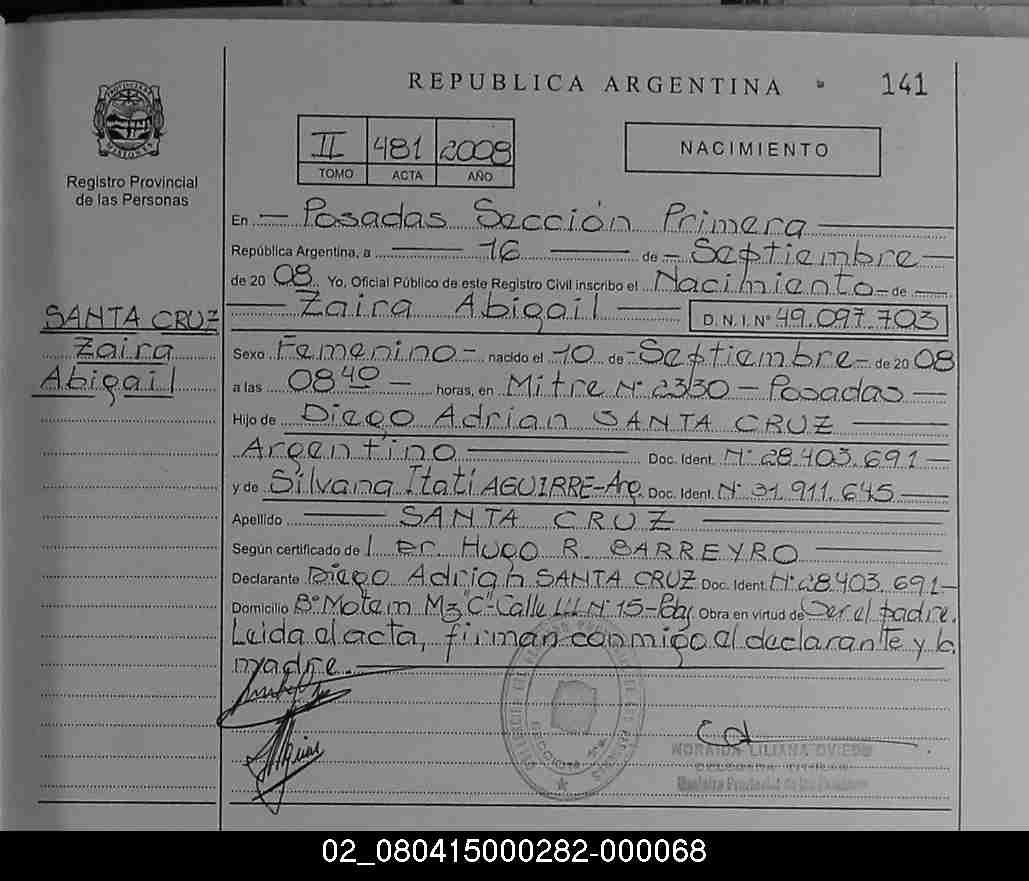 REPUBLICA ARGENTINA
141
PROVINCIA DE
MISIONES
Registro Provincial
de las Personas
II 481 2008
TOMO ACTA AÑO
NACIMIENTO
En — Posadas Sección Primera —
República Argentina, a — 16 — de — Septiembre —
de 20 08. Yo, Oficial Público de este Registro Civil inscribo el Nacimiento — de —
— Zaira Abigail — D.N.I. Nº 49.097.703
SANTA CRUZ
Zaira
Abigail
Sexo Femenino — nacido el 10 de — Septiembre — de 20 08
a las 08:40 — horas, en Mitre Nº 2330 — Posadas —
Hijo de Diego Adrian SANTA CRUZ —
Argentino — Doc. Ident. Nº 28.403.691 —
y de Silvana Itatí AGUIRRE-Arg. Doc. Ident. Nº 31.911.645 —
Apellido — SANTA CRUZ —
Según certificado de l Dr. HUGO R. BARREYRO —
Declarante Diego Adrian SANTA CRUZ Doc. Ident. Nº 28.403.691 —
Domicilio Bº Mz "C" - Calle Nº 15 - Obra en virtud de Ser el padre.
Leida el acta, firman conmigo el declarante y la
madre. —
NORAIDA LILIANA OVIEDO
DELEGADA TITULAR
Registro Provincial de las Personas
02_080415000282-000068